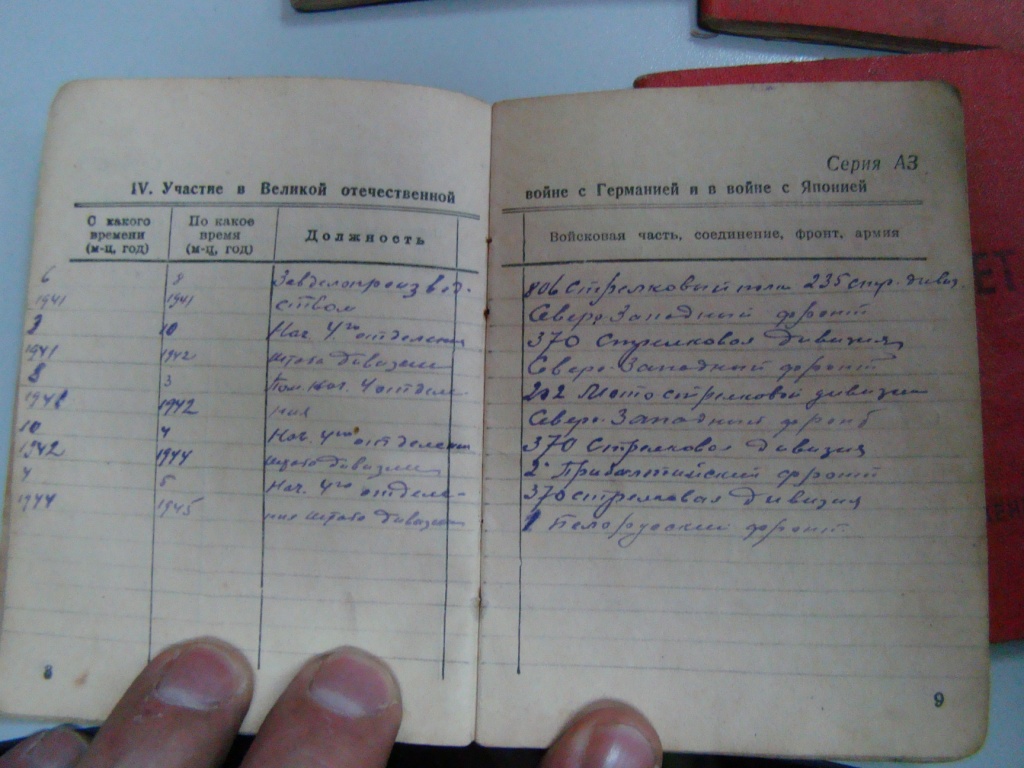 Серия АЗ
IV. Участие в Великой отечественной войне с Германией и в войне с Японией
С какого времени (м-ц, год) По какое время (м-ц, год) Должность Войсковая часть, соединение, фронт, армия
6 9 Завделопроизвод- 806 Стрелковый полк 235 стр. дивиз.
1941 1941 ством Северо Западный фронт
9 10 Нач. 4го отделения 370 Стрелковая дивизия
1941 1942 штаба дивизии Северо-Западный фронт
8 3 Пом. нач. 4 отделе 202 Мото стрелковой дивизии
1941 1942 ния Северо-Западный фронт
10 4 Нач. 4го отделения 370 Стрелковая дивизия
1942 1944 штаба дивизии 2й Прибалтийский фронт
4 5 Нач. 4го отделе- 370 стрелковая дивизия
1944 1945 ния штаба дивизии 1 Белорусский фронт.
8
9
ЕТ